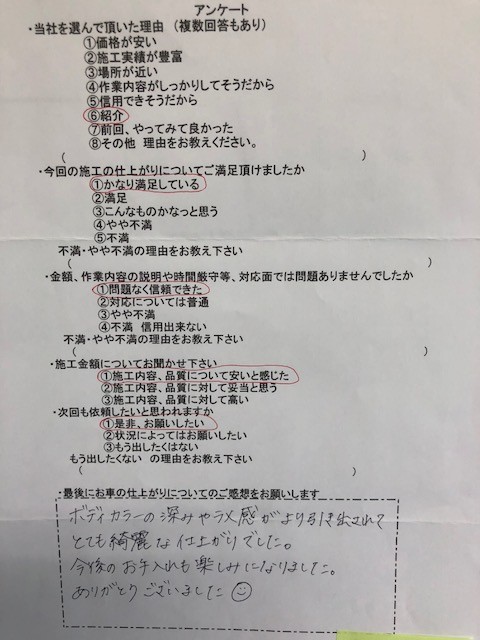 アンケート
・当社を選んで頂いた理由 （複数回答もあり）
①価格が安い
②施工実績が豊富
③場所が近い
④作業内容がしっかりしてそうだから
⑤信用できそうだから
⑥紹介
⑦前回、やってみて良かった
⑧その他 理由をお教えください。
( )
・今回の施工の仕上がりについてご満足頂けましたか
①かなり満足している
②満足
③こんなものかなっと思う
④やや不満
⑤不満
不満・やや不満の理由をお教え下さい
( )
・金額、作業内容の説明や時間厳守等、対応面では問題ありませんでしたか
①問題なく信頼できた
②対応については普通
③やや不満
④不満 信用出来ない
不満・やや不満の理由をお教え下さい
( )
・施工金額についてお聞かせ下さい
①施工内容、品質について安いと感じた
②施工内容、品質に対して妥当と思う
③施工内容、品質に対して高い
・次回も依頼したいと思われますか
①是非、お願いしたい
②状況によってはお願いしたい
③もう出したくはない
もう出したくない の理由をお教え下さい
( )
・最後にお車の仕上がりについてのご感想をお願いします
ボディカラーの深みやラメ感がより引き出されて
とても綺麗な仕上がりでした。
今後のお手入れも楽しみになりました。
ありがとうございました